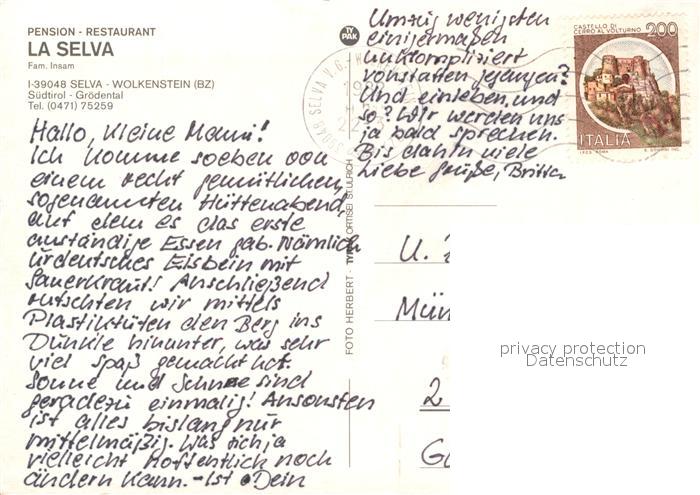 PENSION - RESTAURANT
LA SELVA
Fam. Insam
I-39048 SELVA - WOLKENSTEIN (BZ)
Südtirol - Grödental
Tel. (0471) 75259
Hallo, kleine Mami!
Ich komme soeben von
einem recht gemütlichen,
sogenannten Hüttenabend,
auf dem es das erste
anständige Essen gab. Nämlich
urdeutsches Eisbein mit
Sauerkraut! Anschließend
rutschten wir mittels
Plastiktüten den Berg ins
Dunkle hinunter, was sehr
viel Spaß gemacht hat.
Sonne und Schnee sind
geradezu einmalig! Ansonsten
ist alles bislang nur
mittelmäßig. Was sich ja
vielleicht hoffentlich noch
ändern kann. - Ist Dein
Umzug wenigsten
einigermaßen
unkompliziert
vonstatten gegangen?
Und einleben, und
so? Wir werden uns
ja bald sprechen.
Bis dahin viele
liebe Grüße, Britta
TY
PAK
FOTO HERBERT · ORTISEI ST. ULRICH
39048 SELVA V.G.
CASTELLO DI
CERRO AL VOLTURNO
200
ITALIA
I.P.Z.S. ROMA
U.
Mün
2
G
privacy protection
Datenschutz